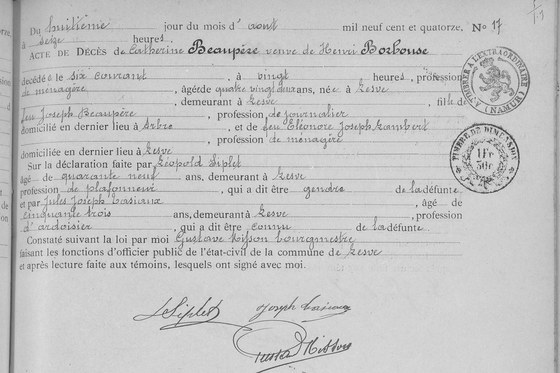 Du huitième jour du mois d'août mil neuf cent et quatorze. N° 17
à seize heures.
ACTE DE DÉCÈS de Catherine Beaupère veuve de Henri Borbouse
décédée le six courant, à vingt heures, profession
de ménagère, âgée de quatre vingt deux ans, née à Lesve
, demeurant à Lesve, fille de
feu Joseph Beaupère, profession de journalier
domicilié en dernier lieu à Arbre, et de feu Eléonore Joseph Lambert
, profession de ménagère
domiciliée en dernier lieu à Lesve
Sur la déclaration faite par Léopold Siplet
âgé de quarante neuf ans, demeurant à Lesve
profession de plafonneur, qui a dit être gendre de la défunte.
et par Jules Joseph Casiaux, âgé de
cinquante trois ans, demeurant à Lesve, profession
d'ardoisier, qui a dit être connu de la défunte.
Constaté suivant la loi par moi Gustave Misson bourgmestre
faisant les fonctions d'officier public de l'état-civil de la commune de Lesve
et après lecture faite aux témoins, lesquels ont signé avec moi.
L. Siplet Joseph Casiaux
Gustave Misson
TIMBRE A L'EXTRAORDINAIRE (NAMUR)
TIMBRE DE DIMENSION
1 Fr
30c